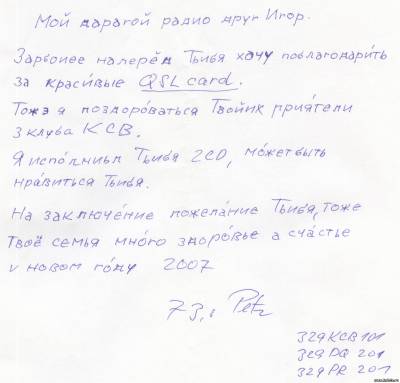 Мой дарагой радио друг Игор.
Зарвоиее налерёд Тьибя хочу поблагодари́ть
за краси́вые QSL card.
Тожэ я поздоро́ваться Твойих прия́тели
з клуба KCB.
Я испо́лниьл Тьибя 2CD, мо́жет быть
нра́виться Тьибя.
На заключе́ние пожела́ние Тьибя, тоже
твоё семья мно́го здоро́вье а сча́стье
и новом го́ду 2007
73,
Petr
329KCB101
329DQ 201
329PR 201